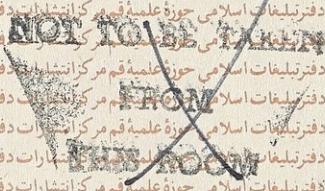 NOT TO BE TAKEN
FROM
THIS ROOM
دفتر تبلیغات اسلامی حوزهٔ علمیهٔ قم مرکز انتشارات